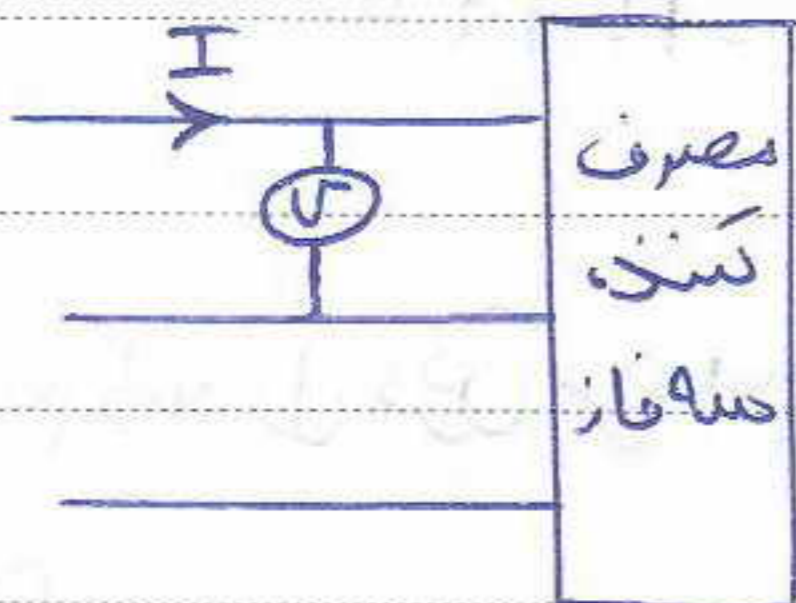 I
V
مصرف
کننده
سه فاز